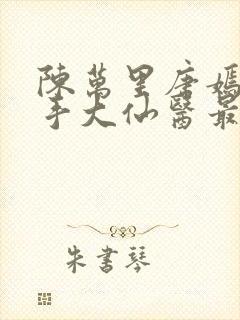 陳萬里唐嫣
手大仙醫最
朱書琴